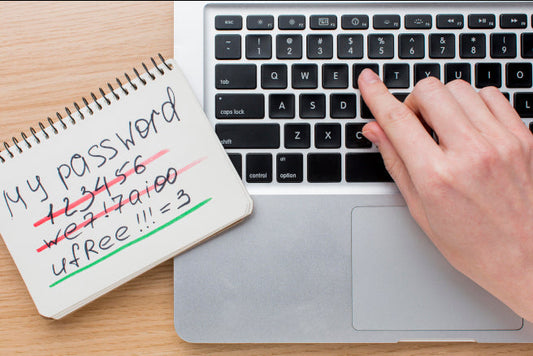 My password
123456
we7!7aioo
ufRee!!!=3
esc
~ ! 1 @ 2 # 3 $ 4 % 5 ^ 6 & 7 * 8 ( 9
tab Q W E T Y U I O
caps lock A S D
shift Z X C
control alt option